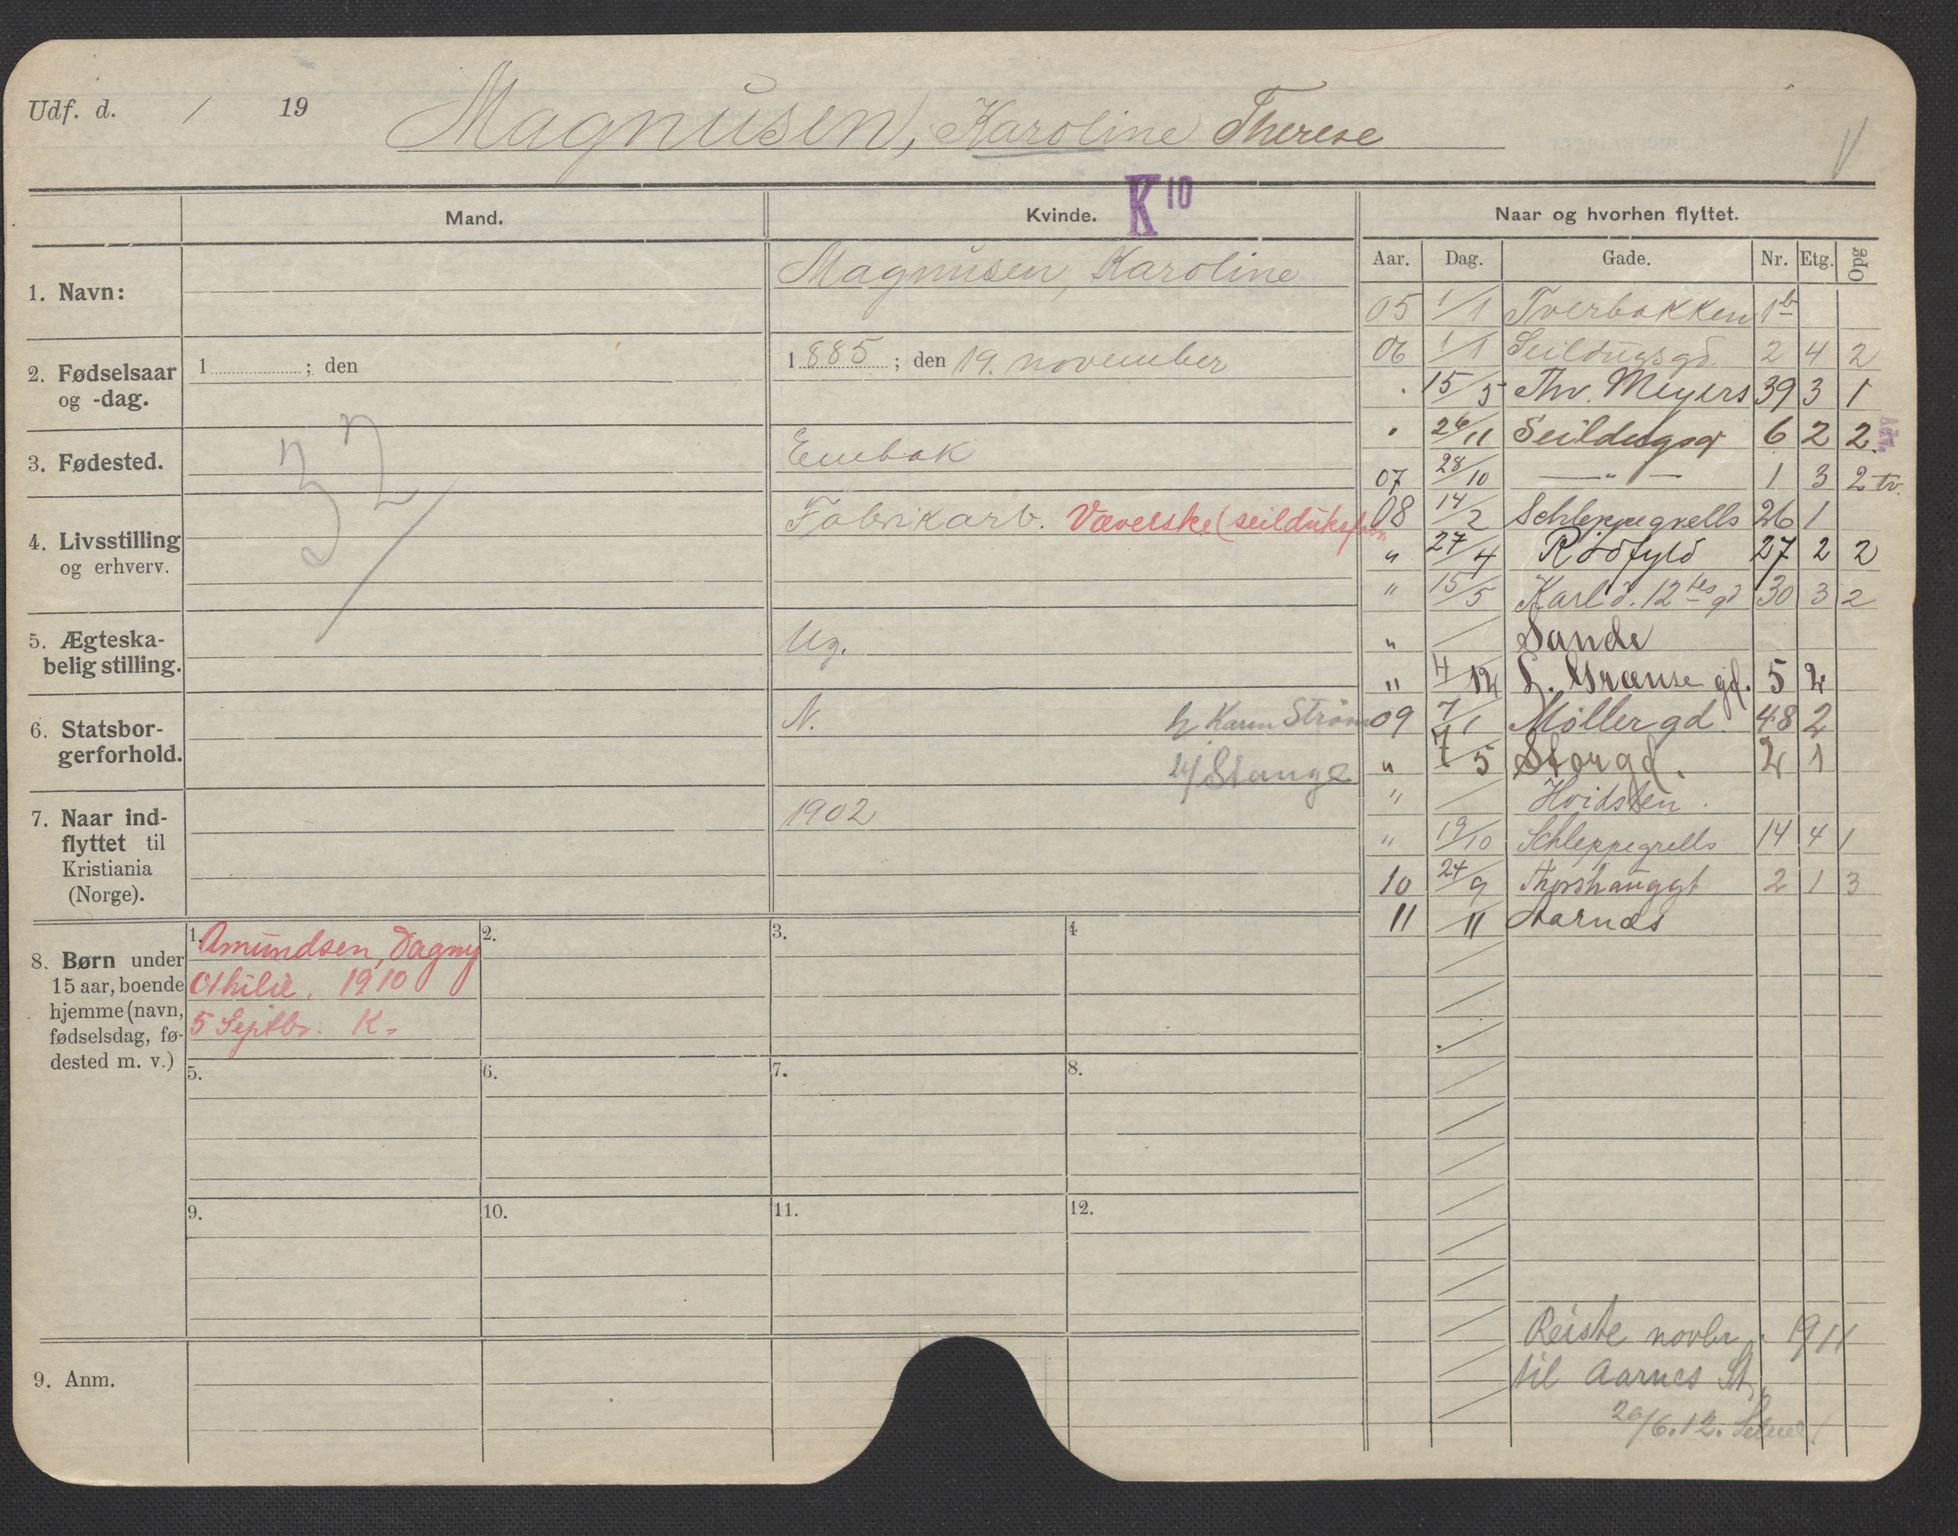 Udf. d. / 19 Magnusen, Karoline Therese
K 10
Mand. Kvinde. Naar og hvorhen flyttet.
Aar. Dag. Gade. Nr. Etg. Opg
1. Navn: Magnusen, Karoline
2. Fødselsaar og -dag. 1 ; den 1885 ; den 19. november
3. Fødested. Enebak
4. Livsstilling og erhverv. Fabrikarb. Væverske (seilduksfabr.
5. Ægteska-
belig stilling. Ug.
6. Statsbor-
gerforhold. N.
h. Karen Strøm
Stange
7. Naar ind-
flyttet til
Kristiania
(Norge). 1902
32
05 1/1 Tverbakken 1b
06 1/1 Seildugsgd. 2 4 2
" 15/5 Thv. Meyers 39 3 1
" 26/11 Seildugsg 6 2 2
07 28/10 — " — 1 3 2 tv.
08 14/2 Schleppegrells 26 1
" 27/4 Rødfyld 27 2 2
" 15/5 Karl d. 12tes gd 30 3 2
" / Sande
" 4/12 L. Grænse gd. 5 2
09 7/1 Møller gd. 48 2
" 7/5 Storgd. 2 1
" / Hvidsten.
" 19/10 Schleppegrells 14 4 1
10 24/9 Thorshauggt 2 1 3
11 /11 Aarnes
8. Børn under
15 aar, boende
hjemme (navn,
fødselsdag, fø-
dested m. v.)
1. Amundsen, Dagny
Othilie. 1910
5 Septbr. K.
2. 3. 4
5. 6. 7. 8.
9. 10. 11. 12.
9. Anm.
Reiste novbr. 1911
til Aarnes St.
20/6.12.